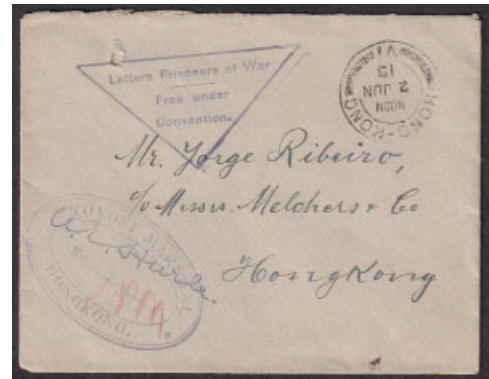 Letters Prisoners of War
Free under
Convention.
HONG-KONG
VI
NOON
2 JUN
15
Mr. Jorge Ribeiro,
c/o Messrs. Melchers & Co
HongKong
PROVOST MARSHAL
HONGKONG.